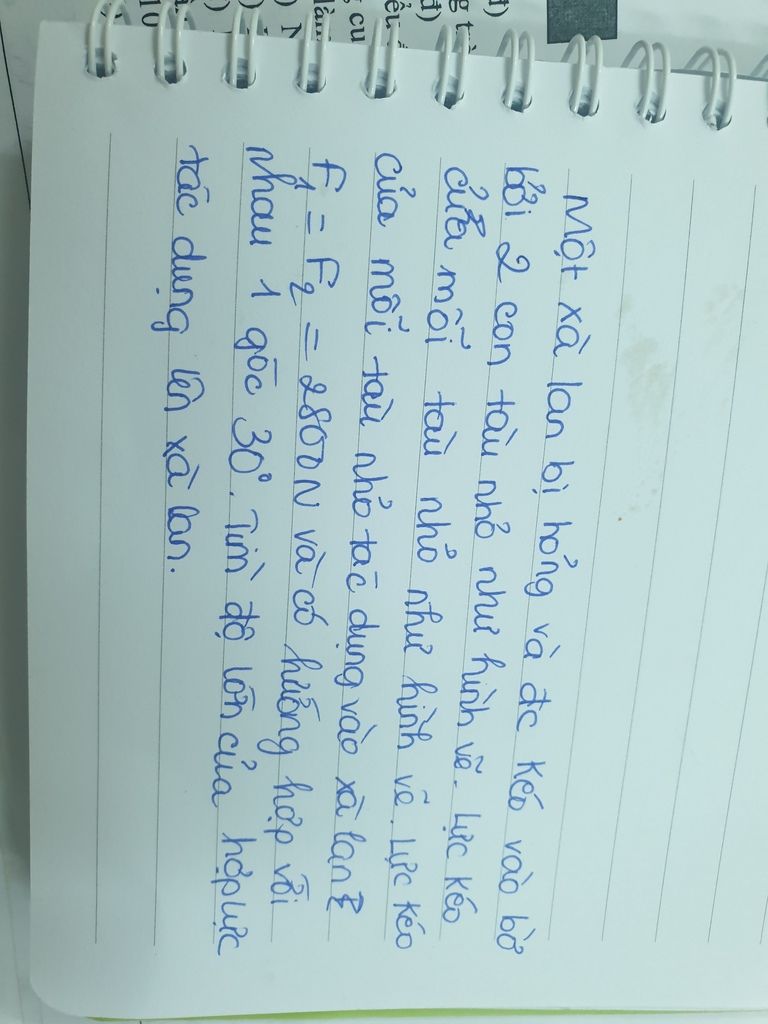 Một xà lan bị hỏng và đc kéo vào bờ
bởi 2 con tàu nhỏ như hình vẽ. Lực kéo
của mỗi tàu nhỏ như hình vẽ. Lực kéo
của mỗi tàu nhỏ tác dụng vào xà lan
F₁ = F₂ = 2800N và có hướng hợp với
nhau 1 góc 30°. Tìm độ lớn của hợp lực
tác dụng lên xà lan.